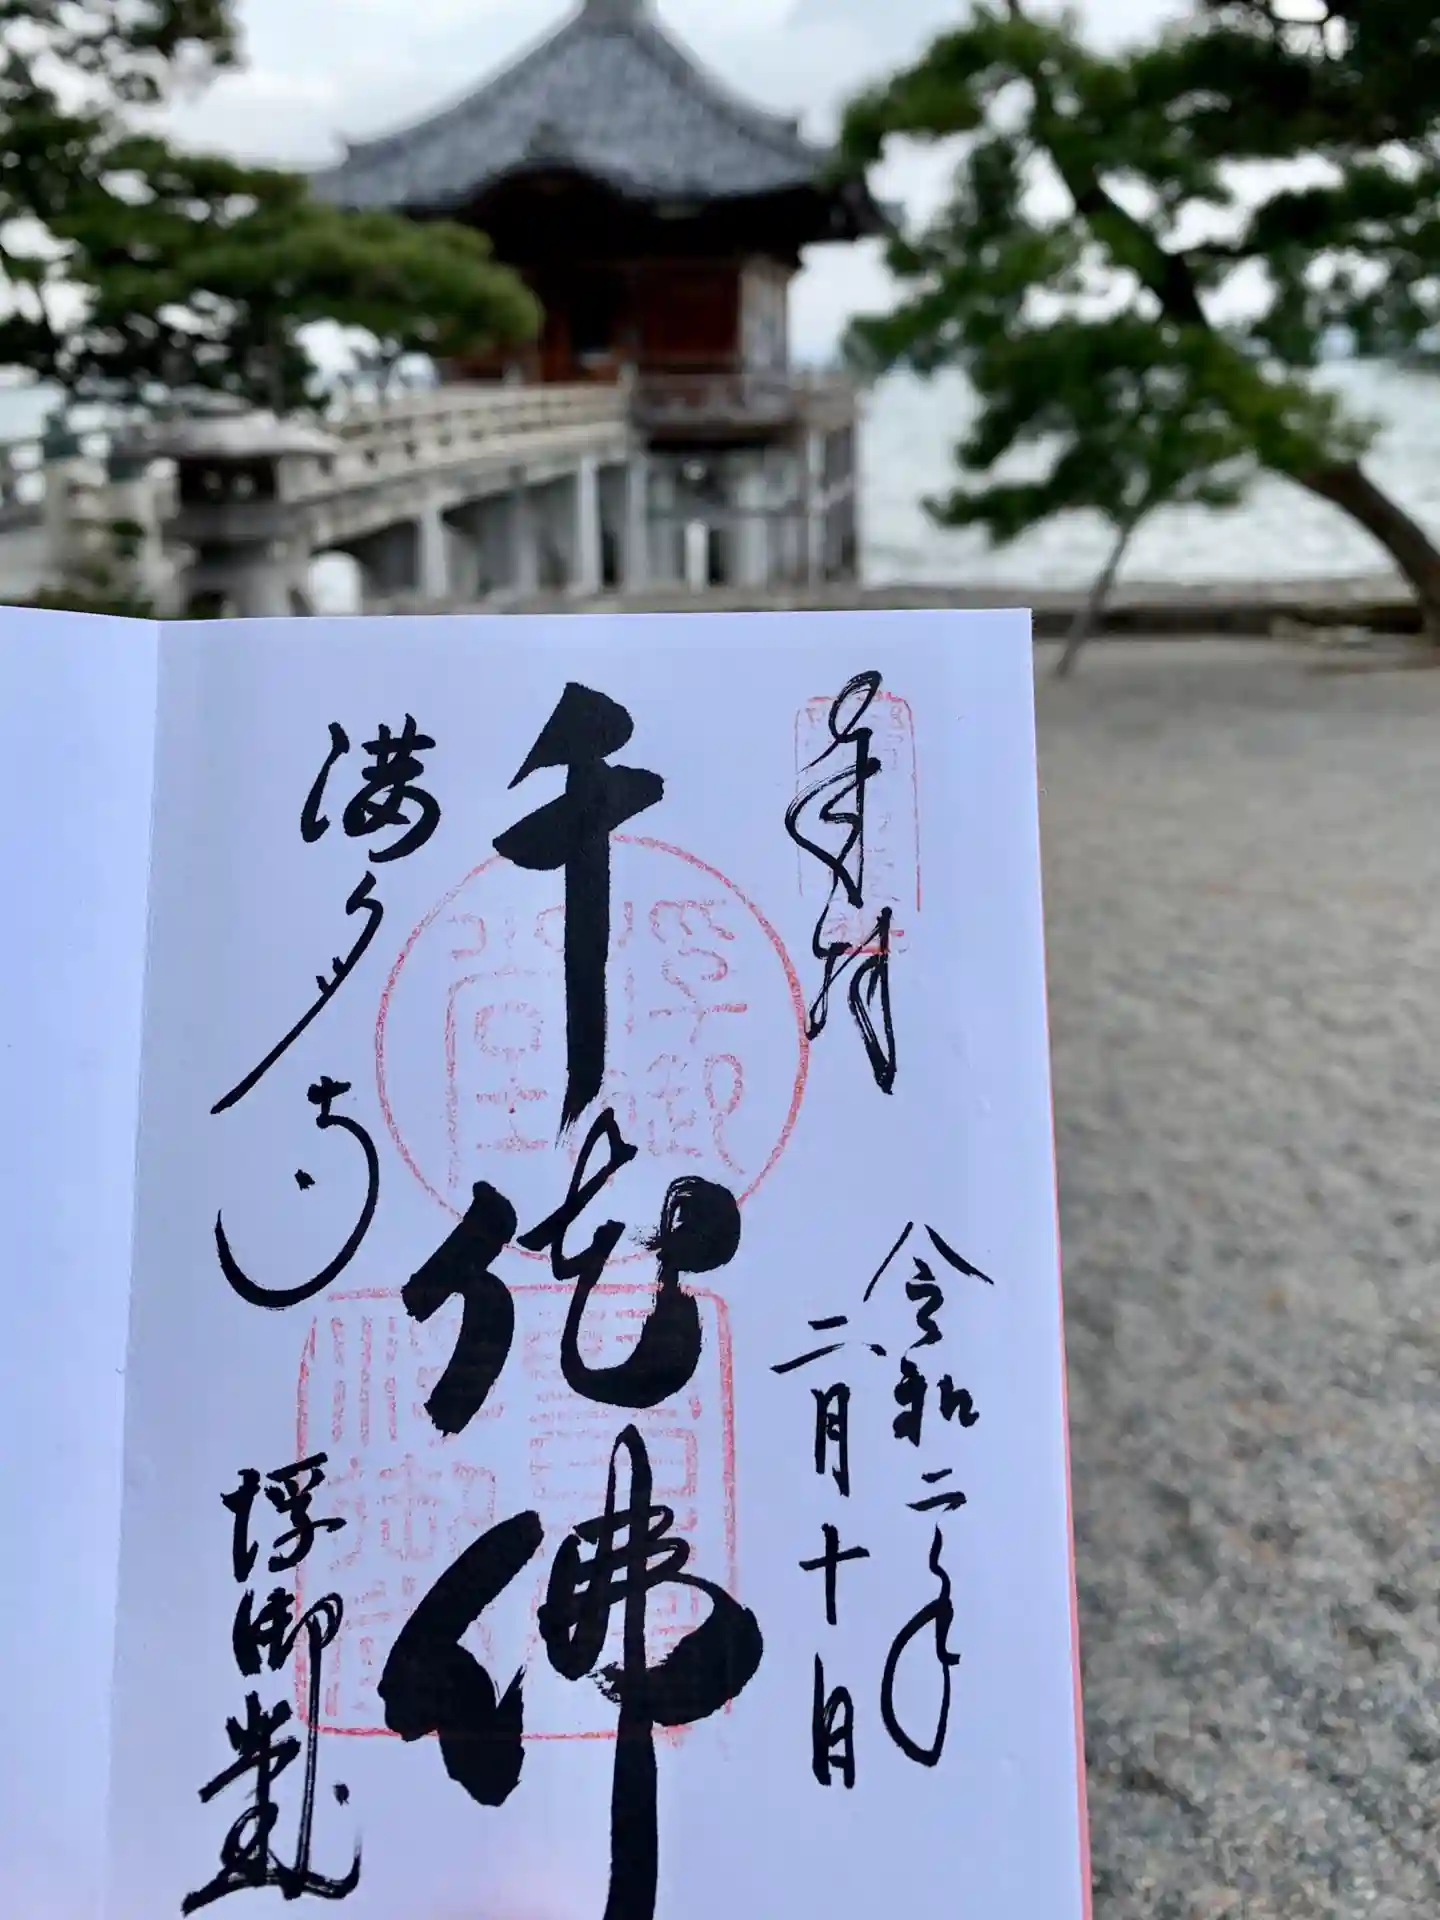 奉拝
令和二年
二月十日
千体佛
満月寺
浮御堂